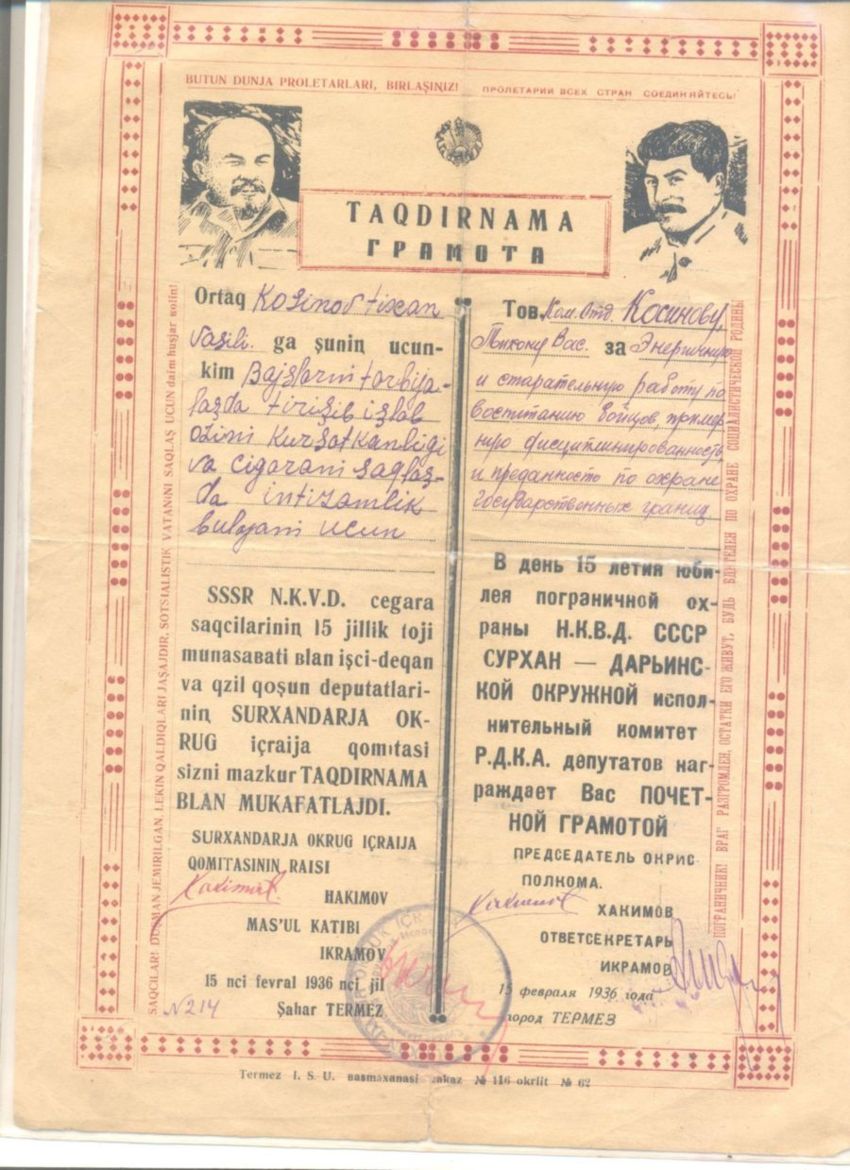 BUTUN DUNJA PROLETARLARI, BIRLAŞIŅIZ!
ПРОЛЕТАРИИ ВСЕХ СТРАН СОЕДИНЯЙТЕСЬ!
TAQDIRNAMA
ГРАМОТА
Ortaq Kosinov tixan
Vasili. ga şuniņ ucun-
kim Bajslarni tarbija-
lasda tirisib islab
ozini kursatkanligi
va cigarani saqlas-
da intizamlik
bulgani ucun
SSSR N.K.V.D. cegara
saqcilariniņ 15 jillik toji
munasavati вlan işci-deqan
va qzil qoşun deputatlari-
niņ SURXANDARJA OK-
RUG içraija qomıtasi
sizni mazkur TAQDIRNAMA
BLAN MUKAFATLAJDI.
SURXANDARJA OKRUG IÇRAIJA
QOMITASININ RAISI
HAKIMOV
MAS'UL KATIBI
IKRAMOV
15 nci fevral 1936 nci jil
Şahar TERMEZ
N214
Тов. Ком. Отд. Косинову
Тихону Вас. за Энергичную
и старательную работу по
воспитанию бойцов, пример
ную дисциплинированность
и преданность по охране
государственных границ
В день 15 летия юби-
лея пограничной ох-
раны Н.К.В.Д. СССР
СУРХАН — ДАРЬИНС-
КОЙ ОКРУЖНОЙ испол-
нительный комитет
Р.Д.К.А. депутатов наг-
раждает Вас ПОЧЕТ-
НОЙ ГРАМОТОЙ
ПРЕДСЕДАТЕЛЬ ОКРИС
ПОЛКОМА.
ХАКИМОВ
ОТВЕТСЕКРЕТАРЬ
ИКРАМОВ
15 февраля 1936 года
город ТЕРМЕЗ
SAQCILAR! DUŞMAN JEMIRILGAN, LEKIN QALDIQLARI JAŞAJDIR, SOTSIALISTIK VATANINI SAQLAŞ UCUN daim huşjar воliņ!
ПОГРАНИЧНИК! ВРАГ РАЗГРОМЛЕН, ОСТАТКИ ЕГО ЖИВУТ, БУДЬ БДИТЕЛЕН ПО ОХРАНЕ СОЦИАЛИСТИЧЕСКОЙ РОДИНЫ
Termez I. S. U. вasmaxanasi zakaz № 116 okrlit № 62